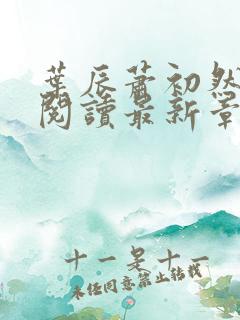 葉辰蕭初然
閱讀最新章
十一是十一
未經同意禁止轉載